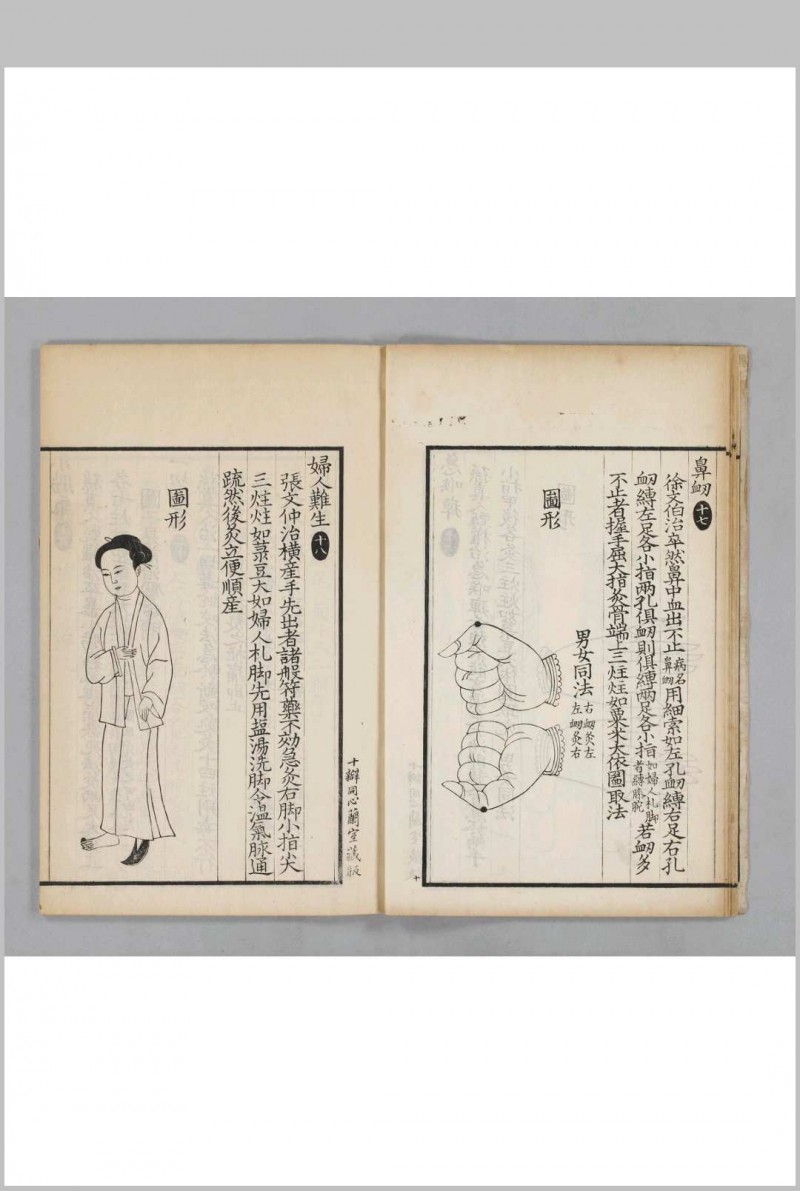 鼻衂 十七
徐文伯治卒然鼻中血出不止病名鼻衂用細索如左孔衂縛右足右孔
衂縛左足各小指兩孔俱衂則俱縛兩足各小指如婦人札脚者縛膝腕若衂多
不止者握手屈大指灸骨端上三炷炷如粟米大依圖取法
男女同法右衂灸左左衂灸右
圖形
十
十瓣同心蘭室藏版
婦人難生 十八
張文仲治橫産手先出者諸般符藥不効急灸右脚小指尖
三炷炷如菉豆大如婦人札脚先用塩湯洗脚令溫氣脉通
疏然後灸立便順産
圖形